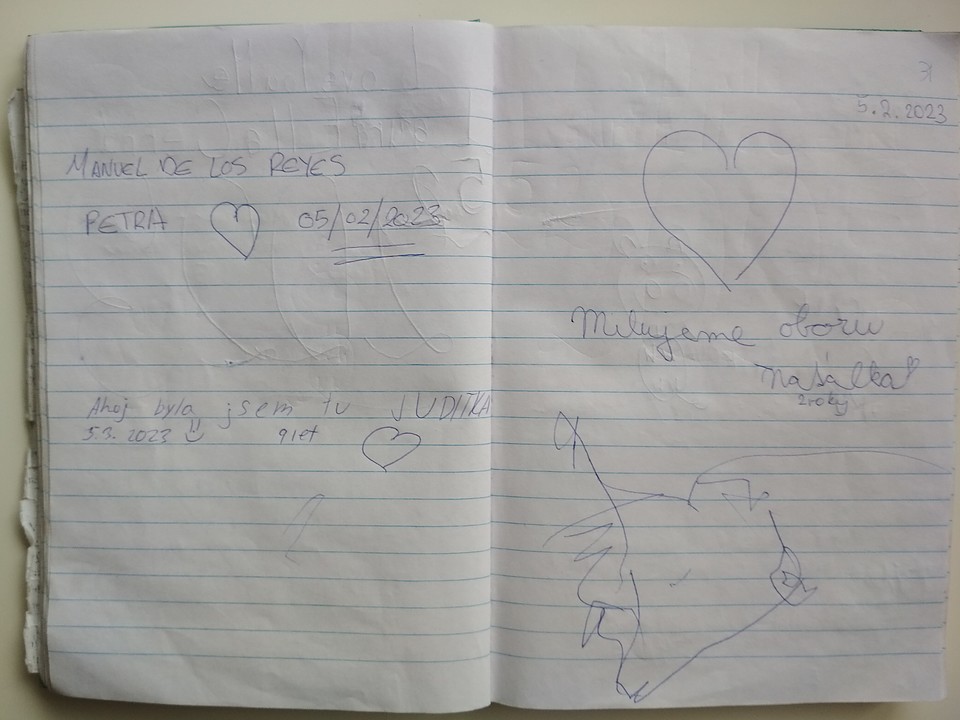 MANUEL DE LOS REYES
PETRA 05/02/2023
Ahoj byla jsem tu JUDITKA
5.3. 2023 9 let
31
5.2.2023
Milujeme oboru
2 roky